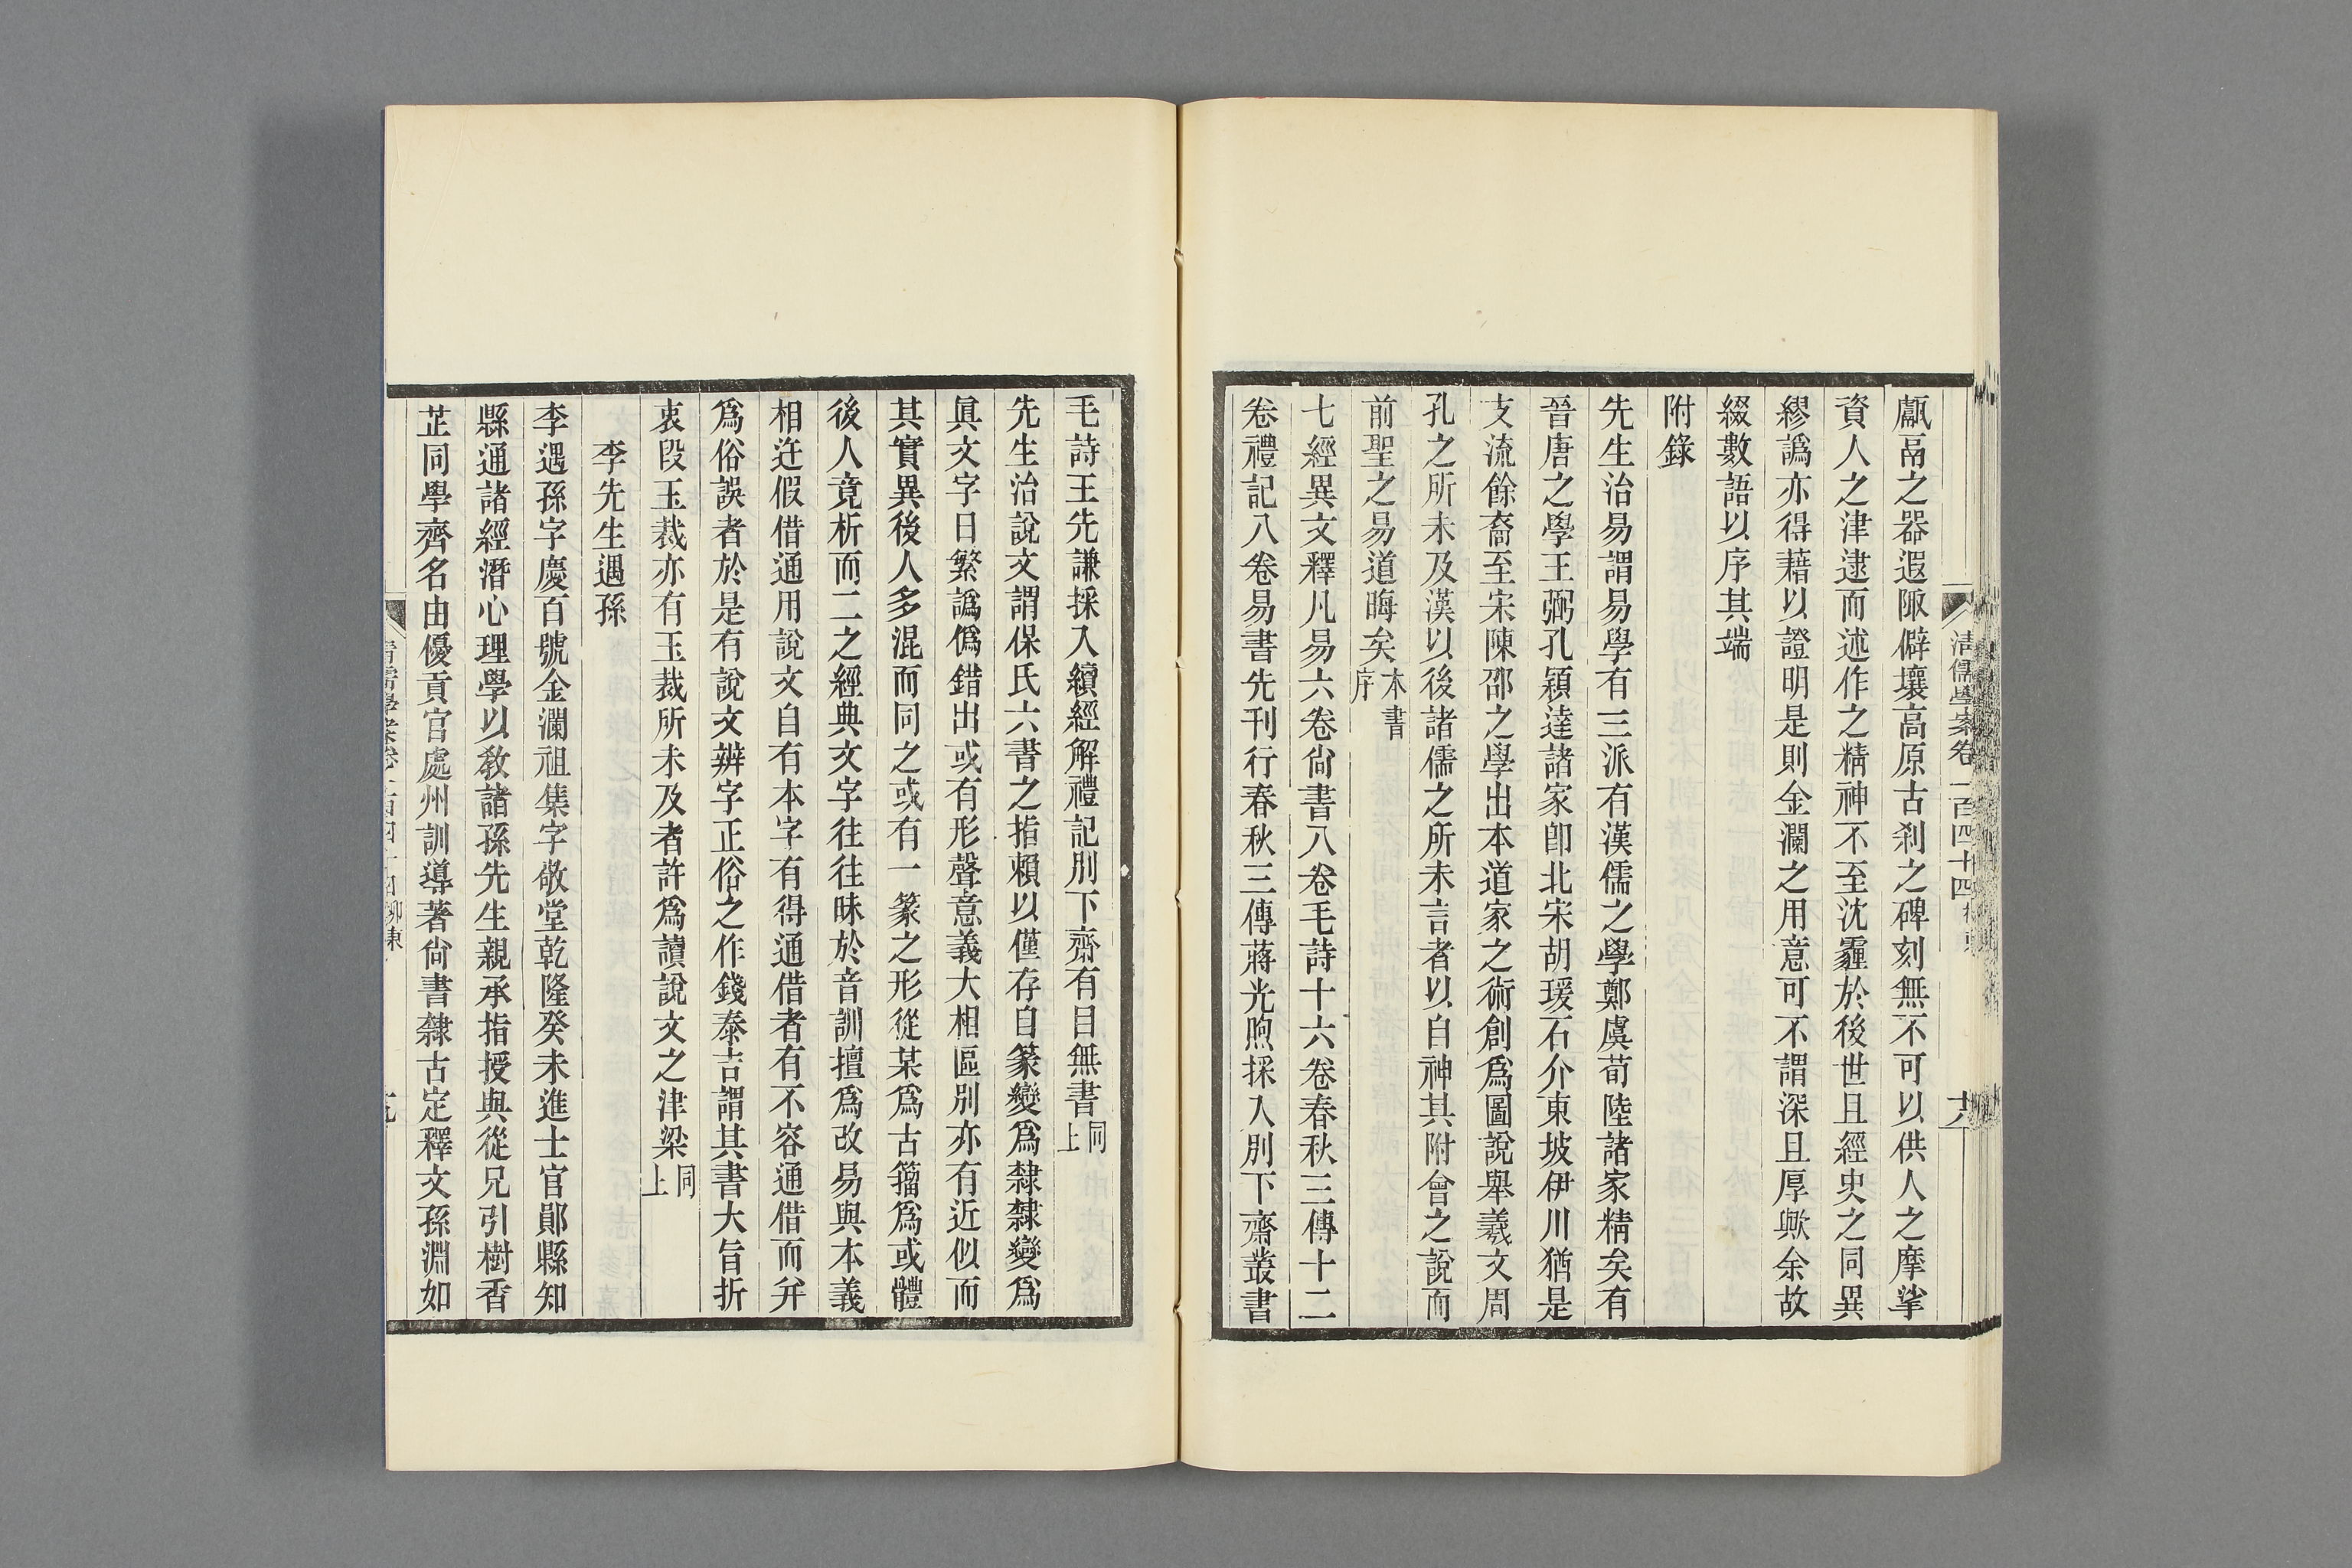 清儒學案卷一百四十四
甗鬲之器遐陬僻壤高原古刹之碑刻無不可以供人之摩挲
資人之津逮而述作之精神不至沈霾於後世且經史之同異
繆譌亦得藉以證明是則金瀾之用意可不謂深且厚歟余故
綴數語以序其端
附錄
先生治易謂易學有三派有漢儒之學鄭虞荀陸諸家精矣有
晉唐之學王弼孔穎達諸家卽北宋胡瑗石介東坡伊川猶是
支流餘裔至宋陳邵之學出本道家之術創爲圖說舉羲文周
孔之所未及漢以後諸儒之所未言者以自神其附會之說而
前聖之易道晦矣本書序
七經異文釋凡易六卷尙書八卷毛詩十六卷春秋三傳十二
卷禮記八卷易書先刊行春秋三傳蔣光煦採入別下齋叢書
毛詩王先謙採入續經解禮記別下齋有目無書同上
先生治說文謂保氏六書之指賴以僅存自篆變爲隸隸變爲
眞文字日繁譌僞錯出或有形聲意義大相區別亦有近似而
其實異後人多混而同之或有一篆之形從某爲古籀爲或體
後人竟析而二之經典文字往往昧於音訓擅爲改易與本義
相迕假借通用說文自有本字有得通借者有不容通借而幷
爲俗誤者於是有說文辨字正俗之作錢泰吉謂其書大旨折
衷段玉裁亦有玉裁所未及者許爲讀說文之津梁同上
李先生遇孫
李遇孫字慶百號金瀾祖集字敬堂乾隆癸未進士官鄖縣知
縣通諸經潛心理學以敎諸孫先生親承指授與從兄引樹香
芷同學齊名由優貢官處州訓導著尙書隸古定釋文孫淵如